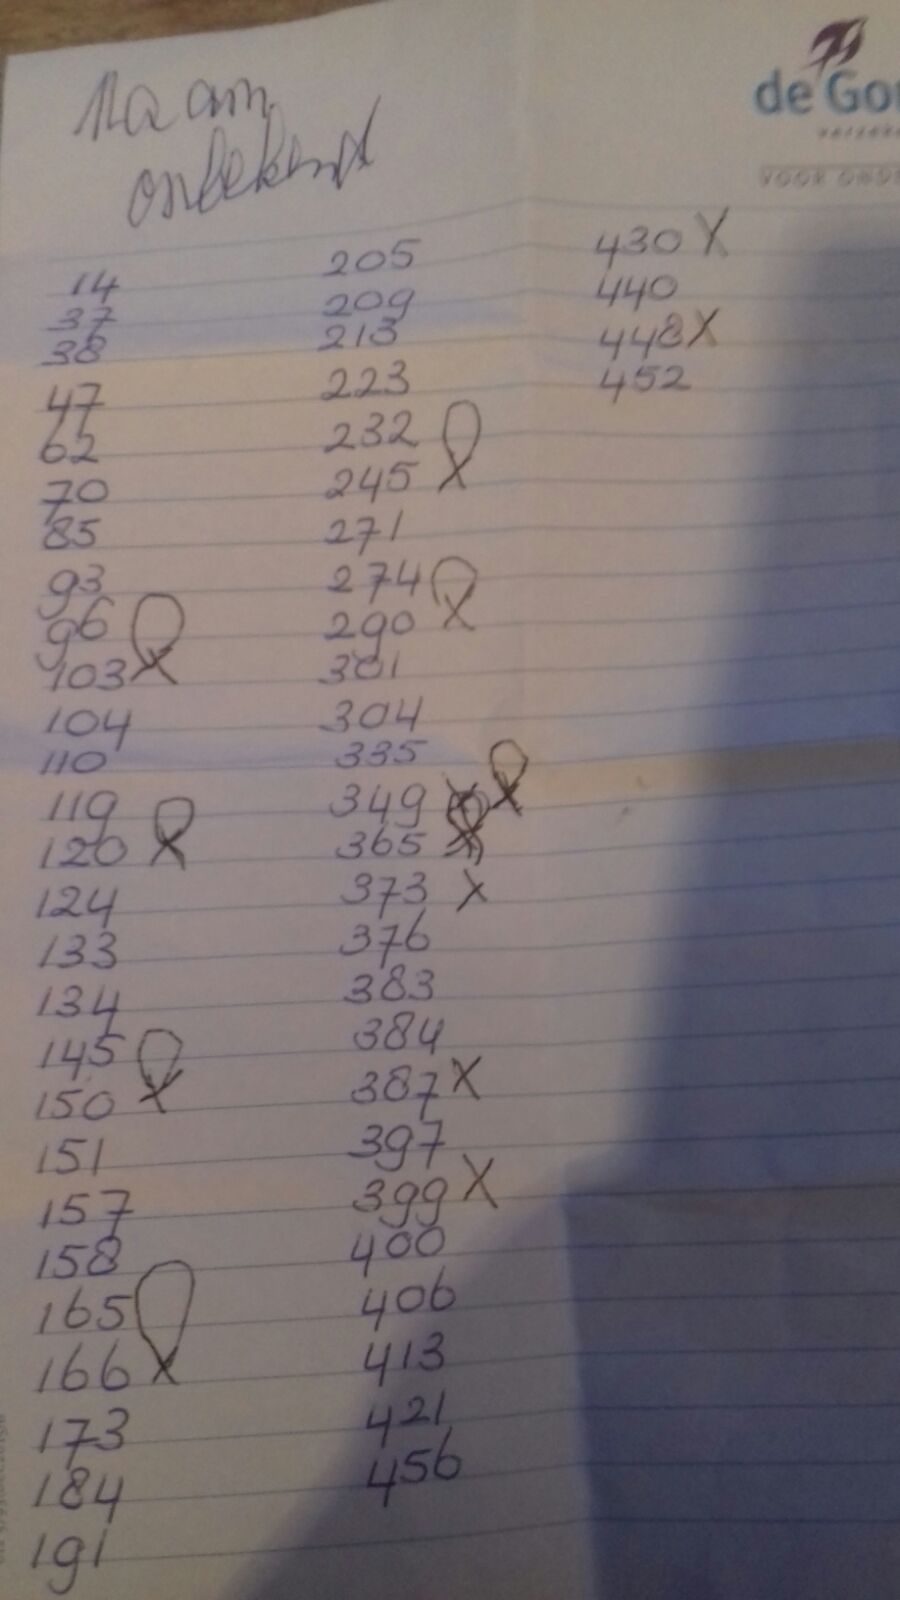 Naam
onbekend
de Go
VOOR OND
14
37
38
47
62
70
85
93
96
103 X
104
110
119
120 X
124
133
134
145
150 X
151
157
158
165
166 X
173
184
191
205
209
213
223
232
245 X
271
274
290 X
301
304
335
349 X
365
373 X
376
383
384
387 X
397
399 X
400
406
413
421
456
430 X
440
448 X
452